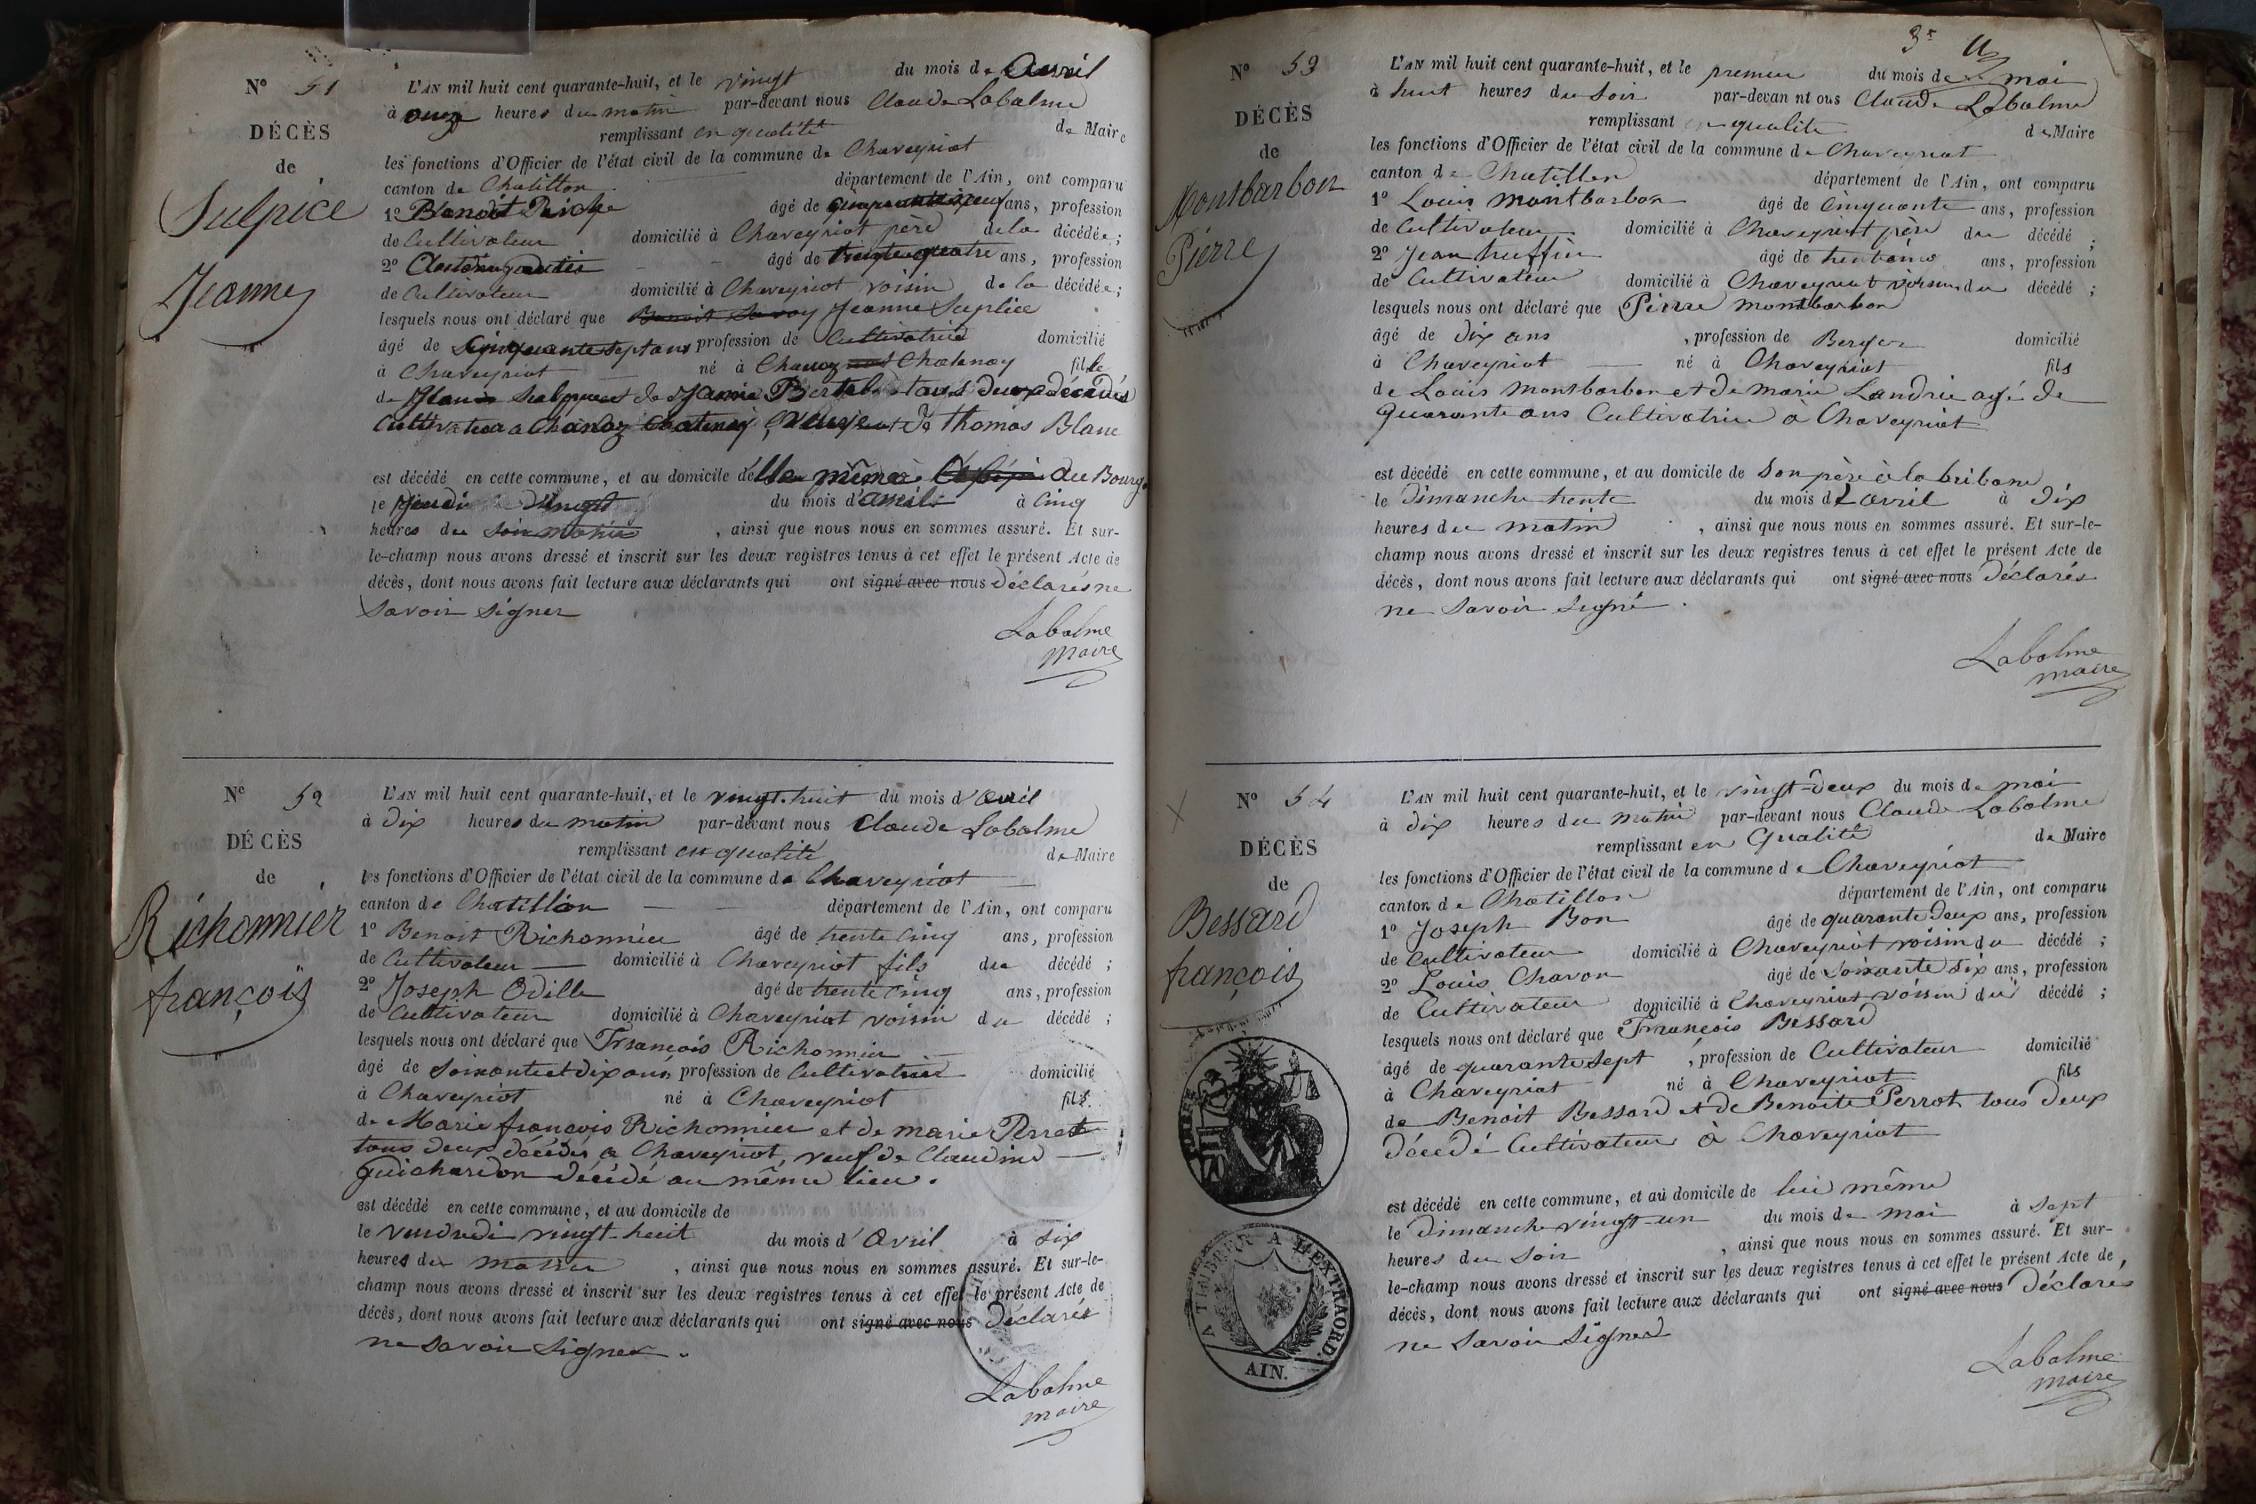 N° 51
DÉCÈS
de
Sulpice
Jeanne
L'AN mil huit cent quarante-huit, et le vingt du mois de Avril
à onze heures du matin par-devant nous Claude Labalme
remplissant en qualité de Maire
les fonctions d'Officier de l'état civil de la commune de Chaveyriat
canton de Chatillon département de l'Ain, ont comparu
1° Benoit âgé de ans, profession
de Cultivateur domicilié à Chaveyriat père de la décédée;
2° âgé de trente quatre ans, profession
de Cultivateur domicilié à Chaveyriat voisin de la décédée;
lesquels nous ont déclaré que Benoit Savoy Jeanne Suplice
âgé de Cinquante sept ans profession de Cultivatrice domicilié
à Chaveyriat né à Chanoz Chatenay fille
de Sulpice et de Marie tous deux décédés
Cultivateur a Chanoz Chatenay, veuve de thomas Blanc
est décédé en cette commune, et au domicile d'elle même au Bourg
le Jeudi vingt du mois d'avril à Cinq
heures du matin, ainsi que nous nous en sommes assuré. Et sur-
le-champ nous avons dressé et inscrit sur les deux registres tenus à cet effet le présent Acte de
décès, dont nous avons fait lecture aux déclarants qui ont signé avec nous Déclarés ne
Savoir Signer
Labalme
Maire
N° 52
DÉCÈS
de
Richonnier
françois
L'AN mil huit cent quarante-huit, et le vingt-huit du mois d'Avril
à Dix heures du matin par-devant nous Claude Labalme
remplissant en qualité de Maire
les fonctions d'Officier de l'état civil de la commune de Chaveyriat
canton de Chatillon département de l'Ain, ont comparu
1° Benoit Richonnier âgé de trente Cinq ans, profession
de Cultivateur domicilié à Chaveyriat fils du décédé;
2° Joseph Odille âgé de trente Cinq ans, profession
de Cultivateur domicilié à Chaveyriat voisin du décédé;
lesquels nous ont déclaré que François Richonnier
âgé de Soixante et dix ans, profession de Cultivateur domicilié
à Chaveyriat né à Chaveyriat fils
de Marie françois Richonnier et de marie Perret
tous deux décédés a Chaveyriat, veuf de Claudine
Guichardon Décédé au même lieu.
est décédé en cette commune, et au domicile de
le vendredi vingt-huit du mois d'Avril à six
heures du matin, ainsi que nous nous en sommes assuré. Et sur-le-
champ nous avons dressé et inscrit sur les deux registres tenus à cet effet le présent Acte de
décès, dont nous avons fait lecture aux déclarants qui ont signé avec nous Déclarés
ne Savoir Signer.
Labalme
maire
N° 53
DÉCÈS
de
Montbarbon
Pierre
L'AN mil huit cent quarante-huit, et le premier du mois de mai
à huit heures du Soir par-devan nt ous Claude Labalme
remplissant en qualité de Maire
les fonctions d'Officier de l'état civil de la commune de Chaveyriat
canton de Chatillon département de l'Ain, ont comparu
1° Louis Montbarbon âgé de Cinquante ans, profession
de Cultivateur domicilié à Chaveyriat père du décédé;
2° Jean huffin âgé de ans, profession
de Cultivateur domicilié à Chaveyriat voisin du décédé;
lesquels nous ont déclaré que Pierre Montbarbon
âgé de Dix ans, profession de Berger domicilié
à Chaveyriat né à Chaveyriat fils
de Louis Montbarbon et de marie Landrie agé de
quarante ans Cultivatrice a Chaveyriat
est décédé en cette commune, et au domicile de Son père à la bribane
le Dimanche trente du mois d'avril à Dix
heures du matin, ainsi que nous nous en sommes assuré. Et sur-le-
champ nous avons dressé et inscrit sur les deux registres tenus à cet effet le présent Acte de
décès, dont nous avons fait lecture aux déclarants qui ont signé avec nous Déclarés
ne Savoir Signé.
Labalme
maire
N° 54
DÉCÈS
de
Bessard
françois
L'AN mil huit cent quarante-huit, et le vingt-deux du mois de mai
à dix heures du matin par-devant nous Claude Labalme
remplissant en Qualité de Maire
les fonctions d'Officier de l'état civil de la commune de Chaveyriat
canton de Chatillon département de l'Ain, ont comparu
1° Joseph Bon âgé de quarante Deux ans, profession
de Cultivateur domicilié à Chaveyriat voisin du décédé;
2° Louis Chavon âgé de Soixante dix ans, profession
de Cultivateur domicilié à Chaveyriat voisin du décédé;
lesquels nous ont déclaré que François Bessard
âgé de quarante Sept, profession de Cultivateur domicilié
à Chaveyriat né à Chaveyriat fils
de Benoit Bessard et de Benoite Perrot tous Deux
Décédé Cultivateur à Chaveyriat
est décédé en cette commune, et au domicile de lui même
le Dimanche vingt-un du mois de mai à Sept
heures du Soir, ainsi que nous nous en sommes assuré. Et sur-
le-champ nous avons dressé et inscrit sur les deux registres tenus à cet effet le présent Acte de
décès, dont nous avons fait lecture aux déclarants qui ont signé avec nous Déclarés
ne Savoir Signer
Labalme
maire
A TIMBRER A L'EXTRAORD.
AIN.